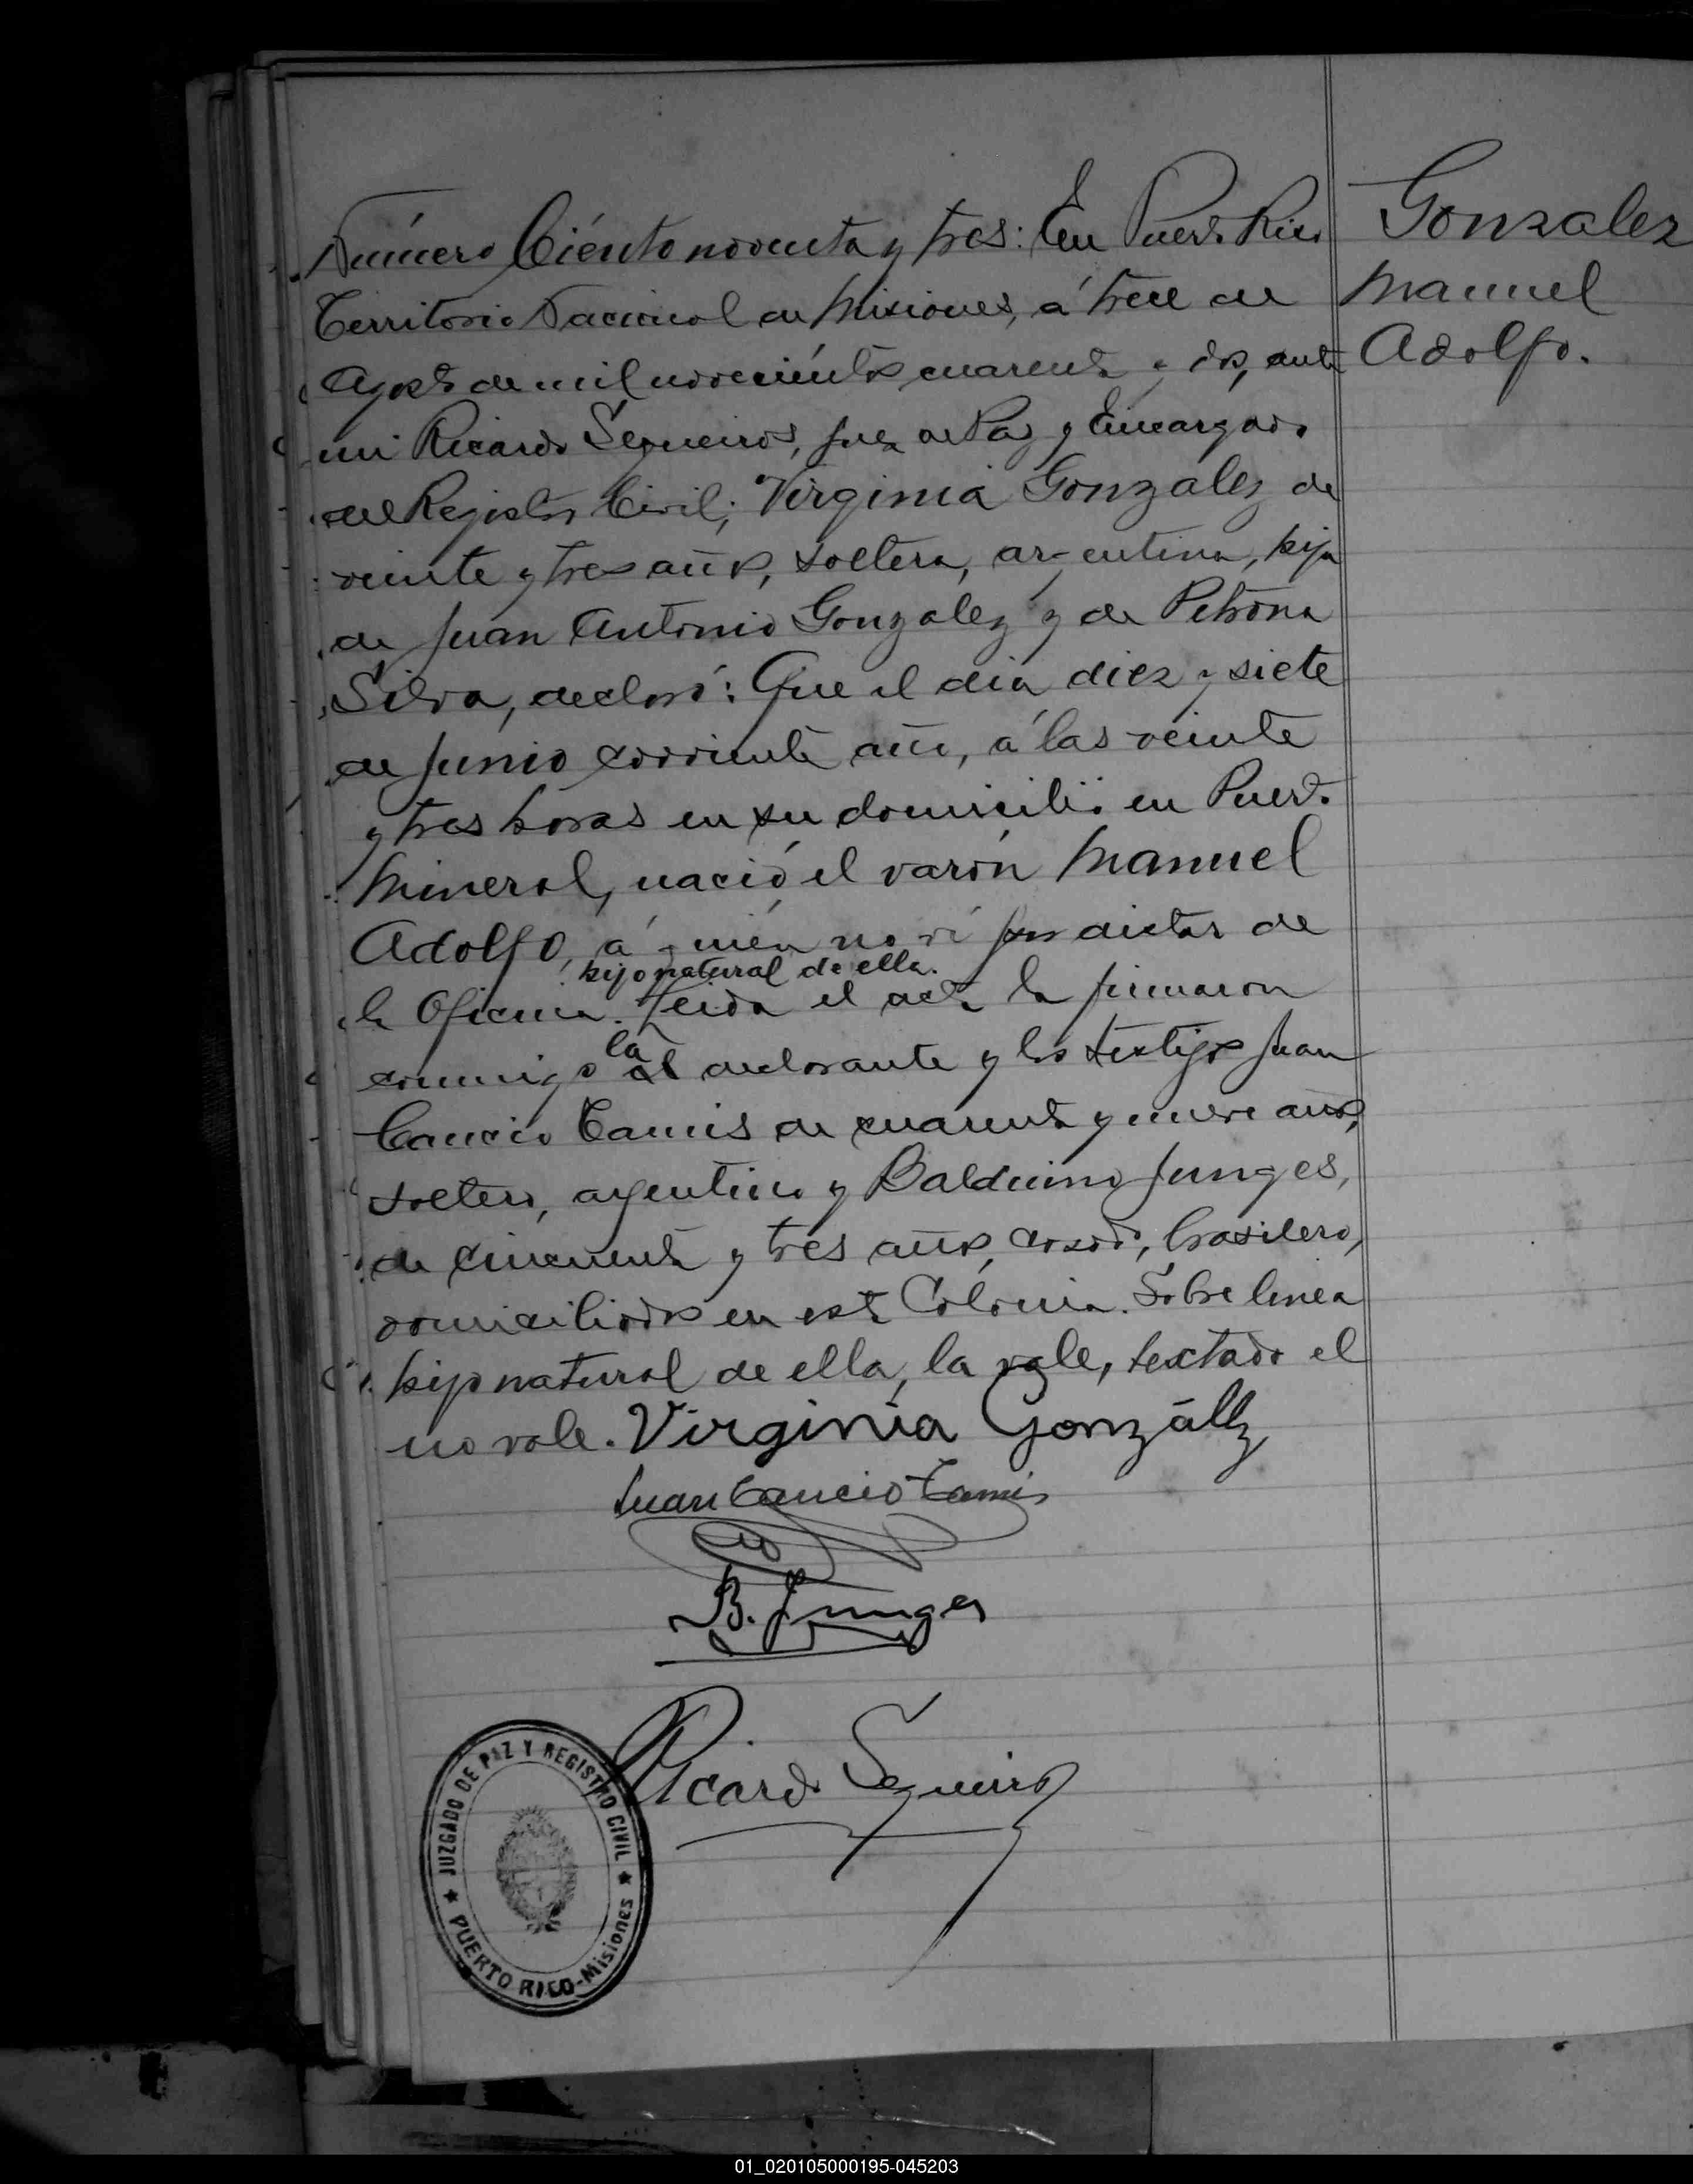 Número Ciento noventa y tres: En Puerto Rico
Territorio Nacional de Misiones, á trece de
Agosto de mil novecientos cuarenta y dos, ante
mi Ricardo Sequeiros, Juez de Paz y Encargado
del Registro Civil; Virginia Gonzalez de
veinte y tres años, soltera, argentina, hija
de Juan Antonio Gonzalez y de Petrona
Silva, declaró: Que el dia diez y siete
de Junio corriente año, á las veinte
y tres horas en su domicilio en Puerto
Mineral, nació el varón Manuel
Adolfo, á quién no ví por distar de
hijo natural de ella.
la Oficina. Leida el acta la firmaron
la
conmigo el declarante y los testigos Juan
Cancio Tamis de cuarenta y nueve años,
soltero, argentino y Balduino Junges,
de cincuenta y tres años, casado, brasilero,
domiciliados en esta Colonia. Sobre linea
hijo natural de ella, la vale, textado el
no vale. Virginia González
Juan Cancio Tamis
B. Junges
Ricardo Sequeiros
JUZGADO DE PAZ Y REGISTRO CIVIL
PUERTO RICO-Misiones
Gonzalez
Manuel
Adolfo.
01_020105000195-045203